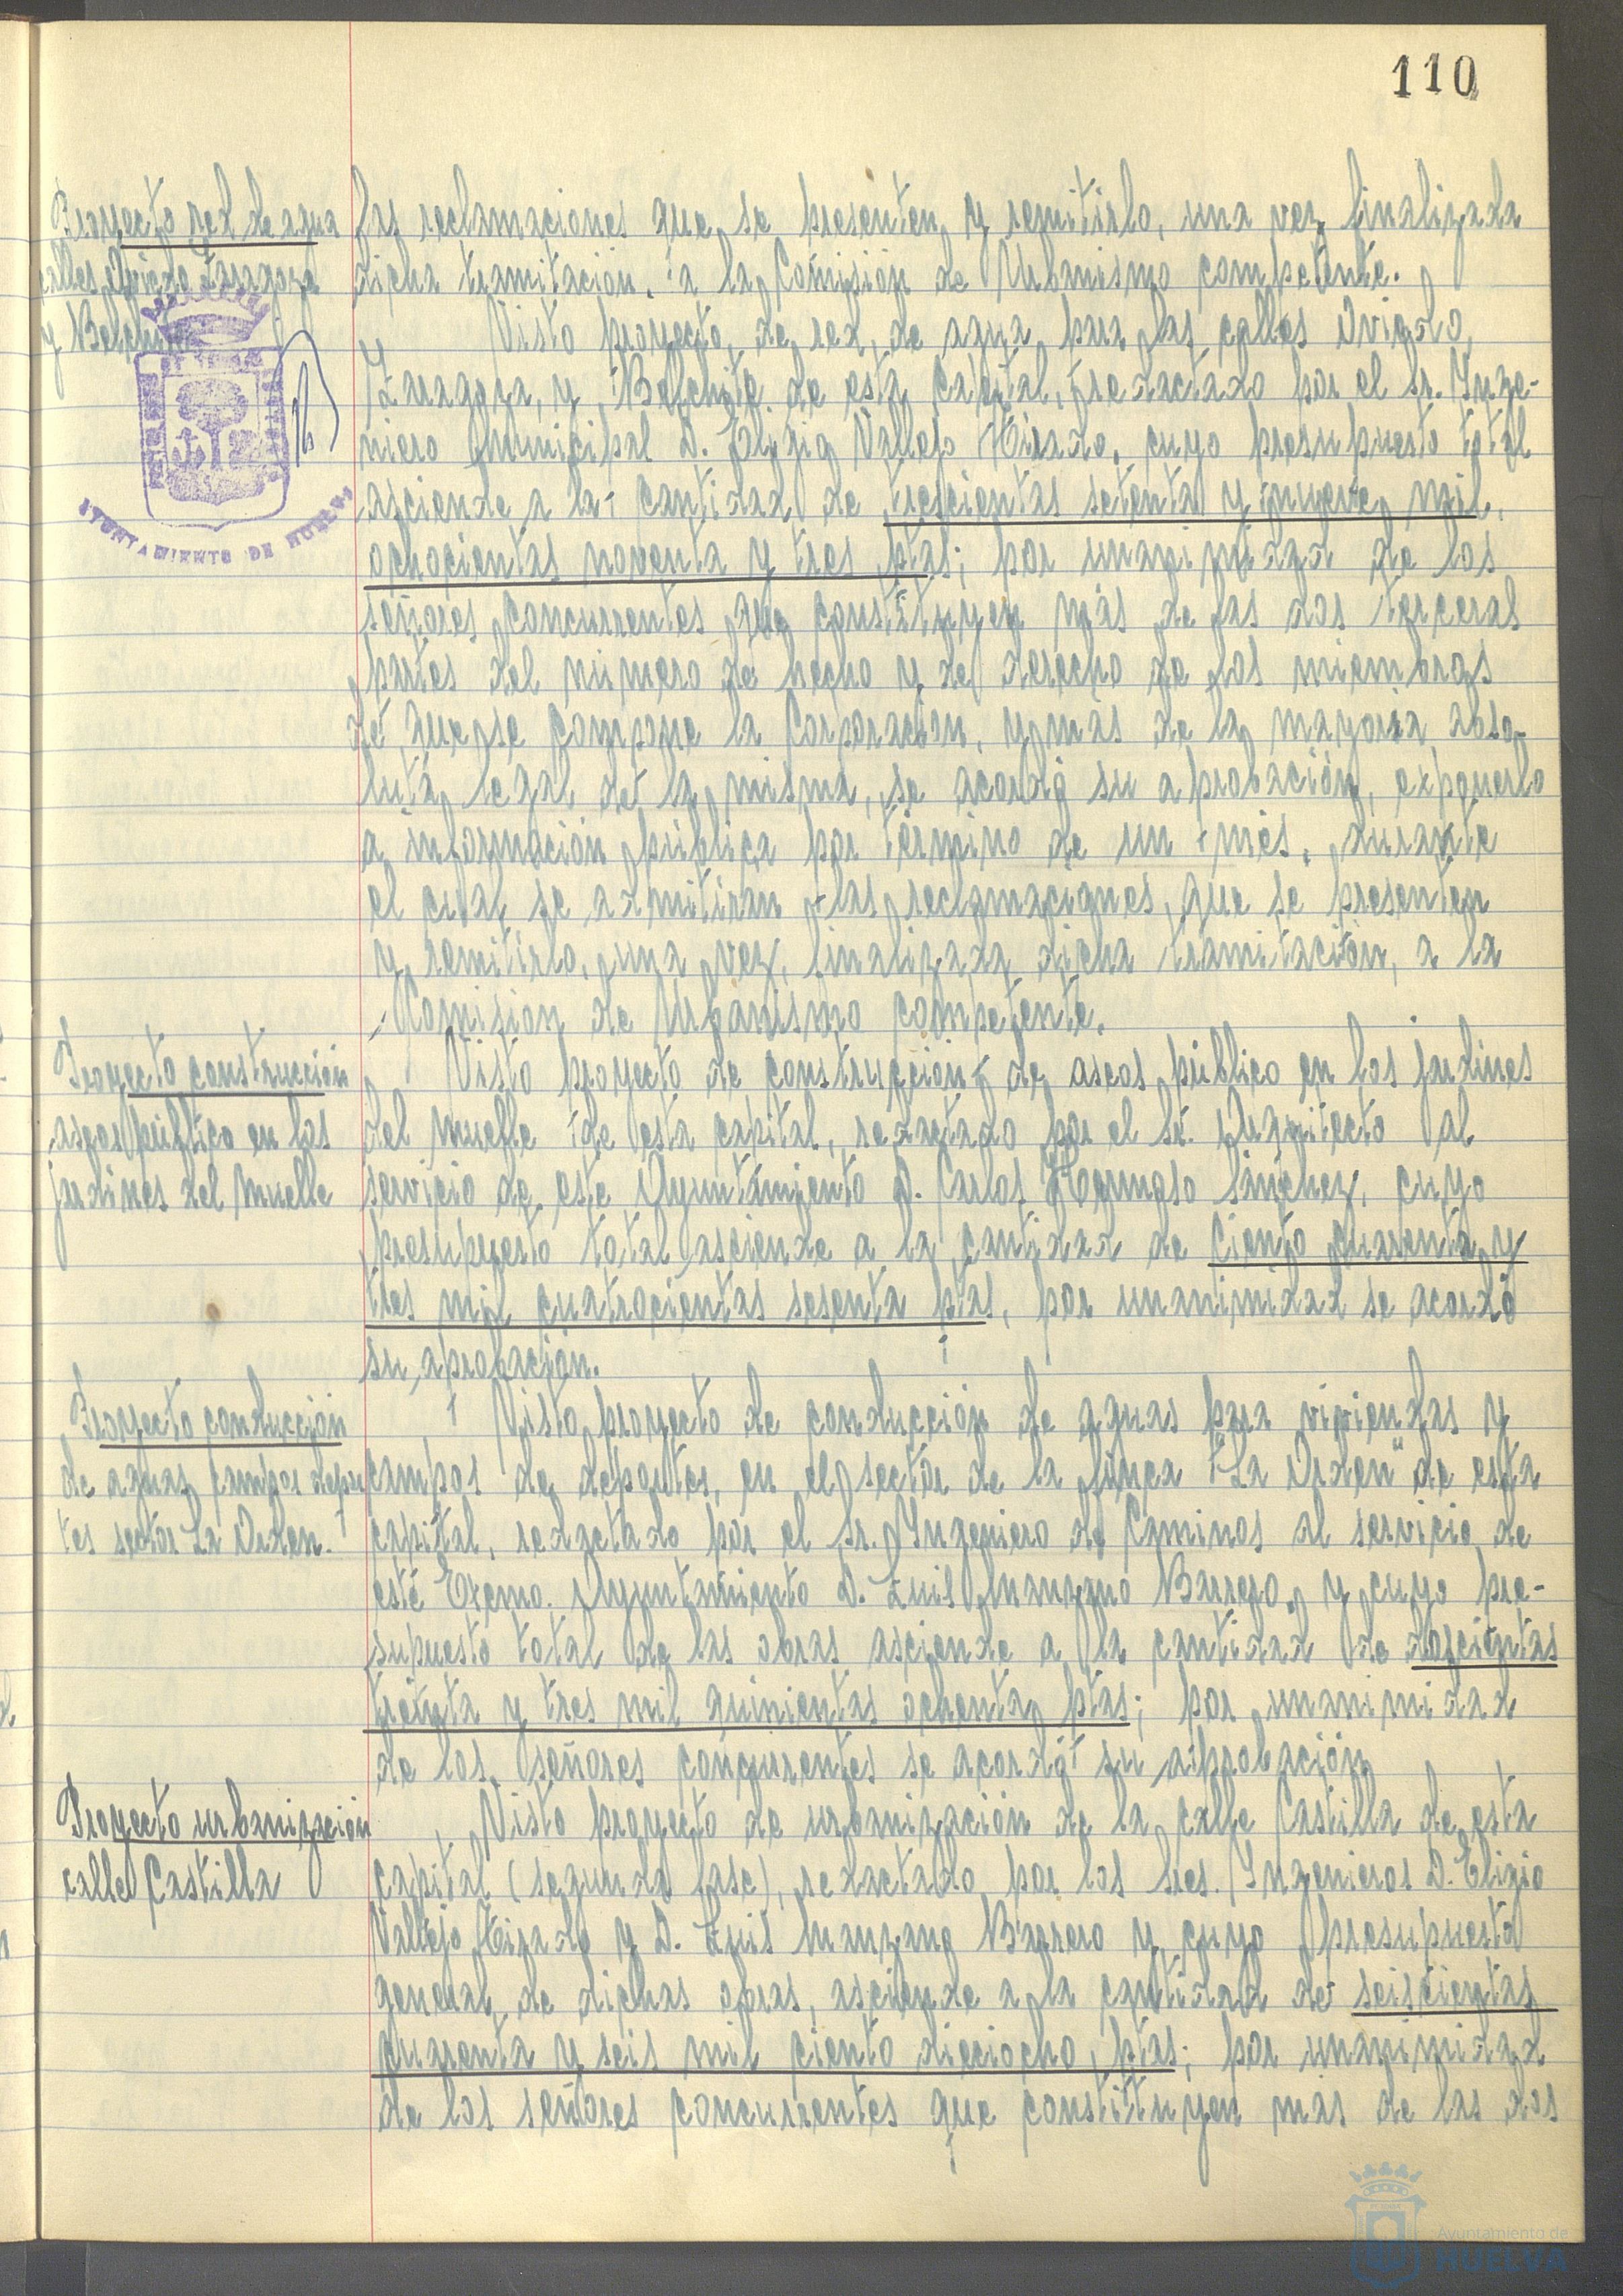 110
Proyecto red de agua
calles Oviedo Zaragoza
y Belchite
AYUNTAMIENTO DE HUELVA
las reclamaciones que se presenten y remitirlo, una vez finalizada
dicha tramitación, a la Comisión de Urbanismo competente.
Visto proyecto de red de agua para las calles Oviedo,
Zaragoza, y Belchite de esta capital, redactado por el Sr. Inge-
niero Municipal D. Eligio Vallejo Tirado, cuyo presupuesto total
asciende a la cantidad de trescientas setenta y nueve mil,
ochocientas noventa y tres ptas; por unanimidad de los
señores concurrentes que constituyen más de las dos terceras
partes del número de hecho y de derecho de los miembros
de que se compone la Corporación, y más de la mayoría abso-
luta legal de la misma, se acordó su aprobación, exponerlo
a información pública por término de un mes, durante
el cual se admitirán las reclamaciones, que se presenten
y remitirlo, una vez, finalizada dicha tramitación, a la
Comisión de Urbanismo competente.
Proyecto construcción
aseos público en los
jardines del Muelle
Visto proyecto de construcción de aseos público en los jardines
del Muelle de esta capital, redactado por el Sr. Arquitecto al
servicio de este Ayuntamiento D. Carlos Hermoso Sánchez, cuyo
presupuesto total asciende a la cantidad de ciento cuarenta y
tres mil cuatrocientas sesenta ptas, por unanimidad se acordó
su aprobación.
Proyecto conducción
de aguas campos depor
tes sector La Orden.
Visto proyecto de conducción de aguas para viviendas y
campos de deportes, en el sector de la finca "La Orden" de esta
capital, redactado por el Sr. Ingeniero de Caminos al servicio de
este Excmo. Ayuntamiento D. Luis Manzano Barrero, y cuyo pre-
supuesto total de las obras asciende a la cantidad de doscientas
treinta y tres mil quinientas ochenta ptas; por unanimidad
de los señores concurrentes se acordó su aprobación
Proyecto urbanización
calle Castilla
Visto proyecto de urbanización de la calle Castilla de esta
capital (segunda fase), redactado por los Sres. Ingenieros D. Eligio
Vallejo Tirado y D. Luis Manzano Barrero y cuyo presupuesto
general de dichas obras, asciende a la cantidad de seiscientas
cuarenta y seis mil ciento dieciocho, ptas; por unanimidad
de los señores concurrentes que constituyen más de las dos
Ayuntamiento de
HUELVA